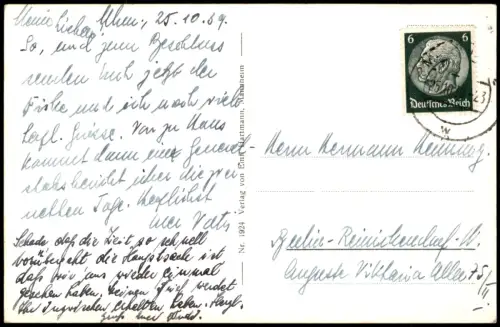 Meine Lieben, Ulm, 25.10.39.
So, und zum Beschluss
senden Euch jetzt der
und ich noch viele
herzl. Grüsse. Von zu Haus
kommt dann ein General-
stabsbericht über die zwei
netten Tage. Herzlichst
Euer Vati
Schade daß die Zeit so schnell
vorübergeht die Hauptsache ist
daß wir uns wieder einmal
gesehen haben. Brief werdet
Ihr inzwischen erhalten haben. Herzl.
Nr. 1924 Verlag von Emil Hartmann, Mannheim
6 6
Deutsches Reich
23
W
Herrn Hermann
Berlin-Reinickendorf-W.
Auguste Viktoria Allee 75/III